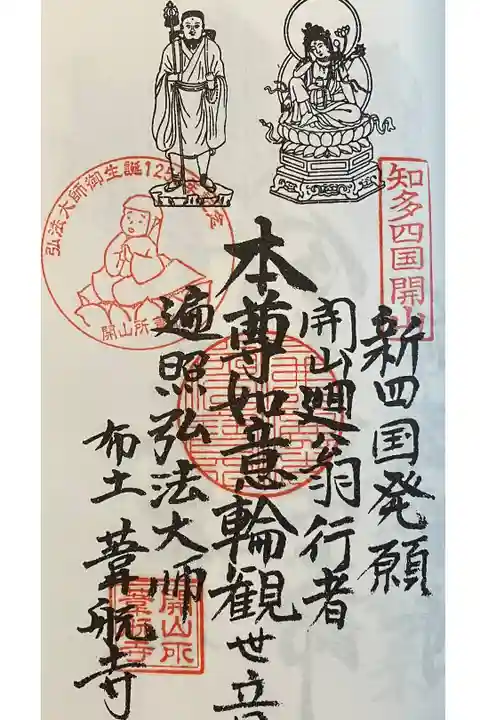 知多四国開山
新四国発願
開山廻翁行者
本尊如意輪観世音
遍照弘法大師
布土 葦航寺
弘法大師御生誕125
念
開山所
開山所
葦航寺